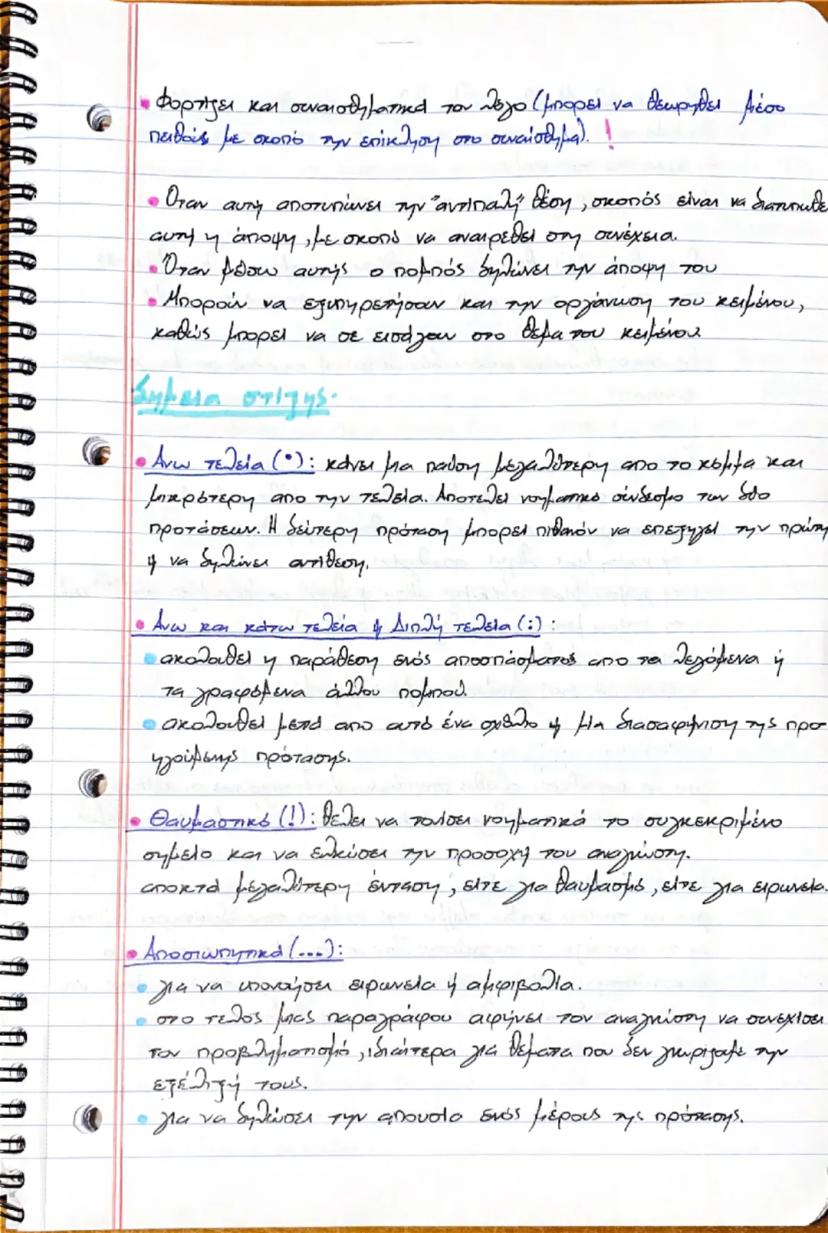 • Φορτίζει και συναισθηματικά τον λόγο (μπορεί να θεωρηθεί μέσο
πειθούς με σκοπό την επίκληση στο συναίσθημα). !
• Όταν αυτή αποτυπώνει την "αντίπαλη" θέση, σκοπός είναι να διατυπωθεί
αυτή η άποψη, με σκοπό να αναιρεθεί στη συνέχεια.
• Όταν μέσω αυτής ο πομπός δηλώνει την άποψη του
• Μπορούν να εξυπηρετήσουν και την οργάνωση του κειμένου,
καθώς μπορεί να σε εισάγουν στο θέμα του κειμένου.
Σημεία στίξης.
• Άνω τελεία (•): κάνει μια παύση μεγαλύτερη απο το κόμμα και
μικρότερη από την τελεία. Αποτελεί νοηματικό σύνδεσμο των δύο
προτάσεων. Η δεύτερη πρόταση μπορεί πιθανόν να επεξηγεί την πρώτη
ή να δηλώνει αντίθεση.
• Άνω και κάτω τελεία ή Διπλή τελεία (:):
• ακολουθεί η παράθεση ενός αποσπάσματος απο τα λεγόμενα ή
τα γραφόμενα άλλου πομπού.
• ακολουθεί μετά απο αυτό ένα σχόλιο ή μία διασαφήνιση της προ-
ηγούμενης πρότασης.
• Θαυμαστικό (!): θέλει να τονίσει νοηματικά το συγκεκριμένο
σημείο και να ελκύσει την προσοχή του αναγνώστη.
αποκτά μεγαλύτερη ένταση, είτε για θαυμασμό, είτε για ειρωνεία.
• Αποσιωπητικά (...):
• για να υπονοήσει ειρωνεία ή αμφιβολία.
• στο τέλος μιας παραγράφου αφήνει τον αναγνώστη να συνεχίσει
τον προβληματισμό, ιδιαίτερα για θέματα που δεν γνωρίζαμε την
εξέλιξή τους.
• για να δηλώσει την απουσία ενός μέρους της πρότασης.